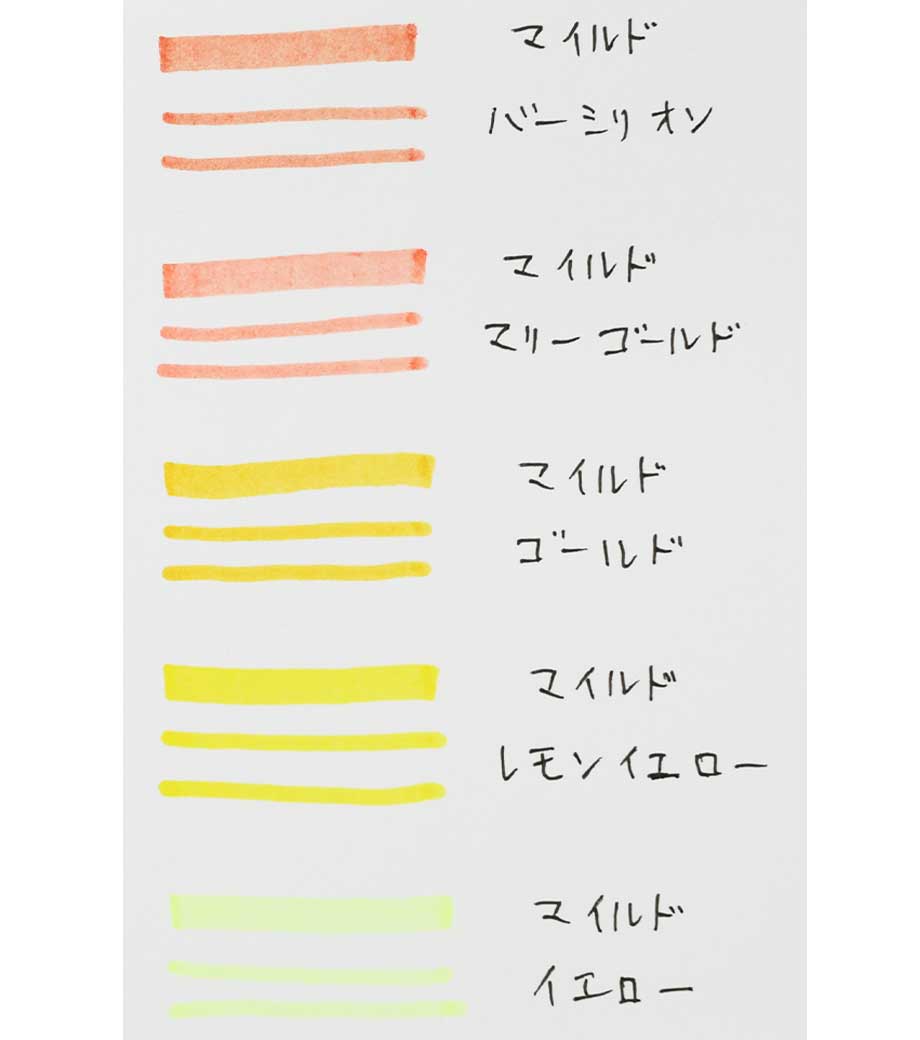 マイルド
バーミリオン
マイルド
マリーゴールド
マイルド
ゴールド
マイルド
レモンイエロー
マイルド
イエロー